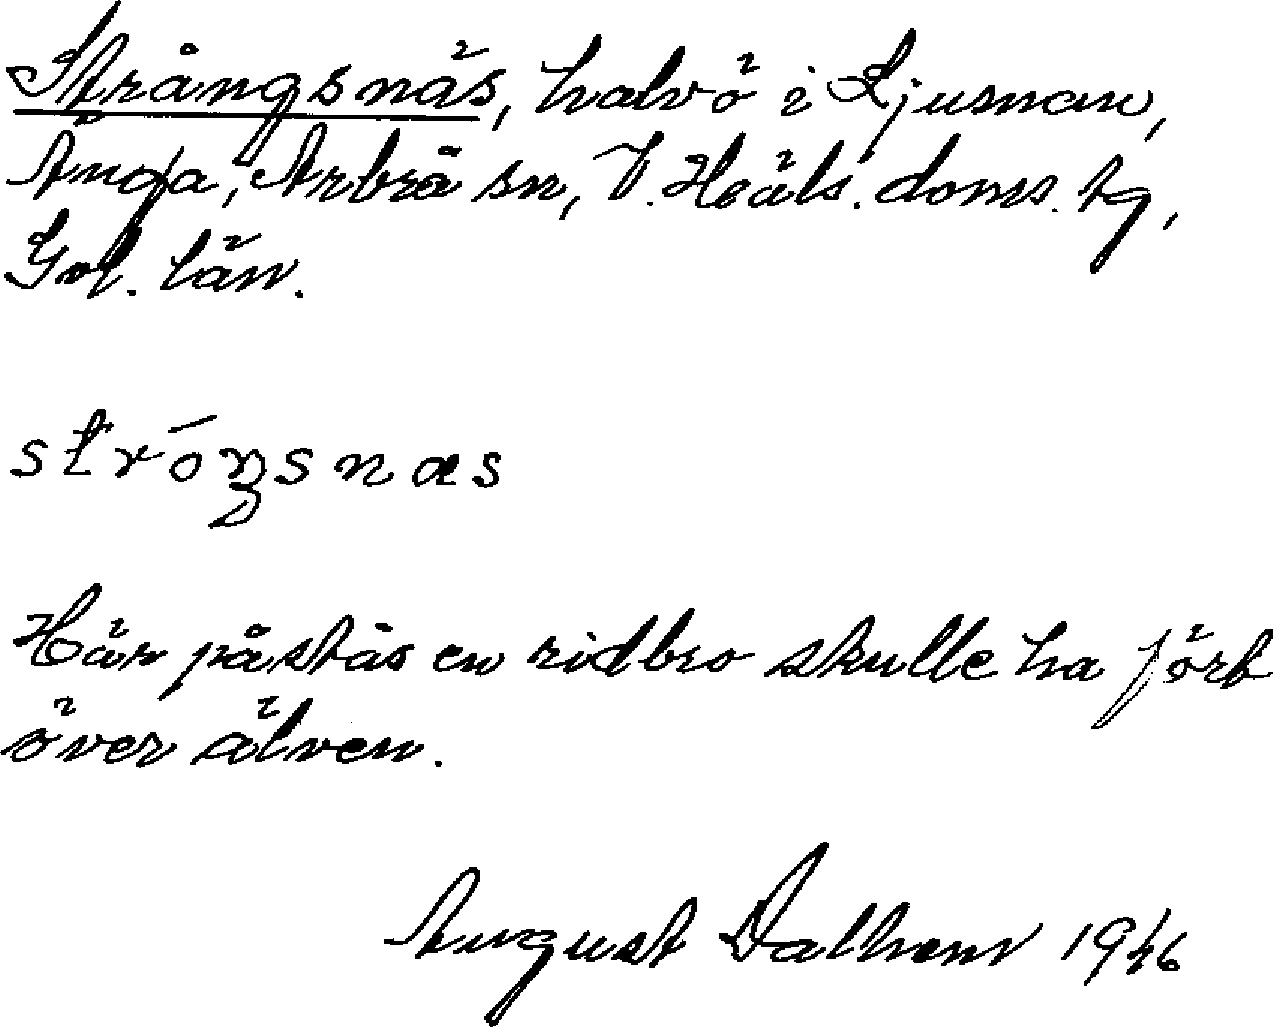 Strångsnäs, halvö i Ljusnan,
Änga, Arbrå sn, V. Häls. doms. tg,
Gvl. län.
stróŋsnæs
Här påstås en ridbro skulle ha fört
över älven.
August Dalhem 1946